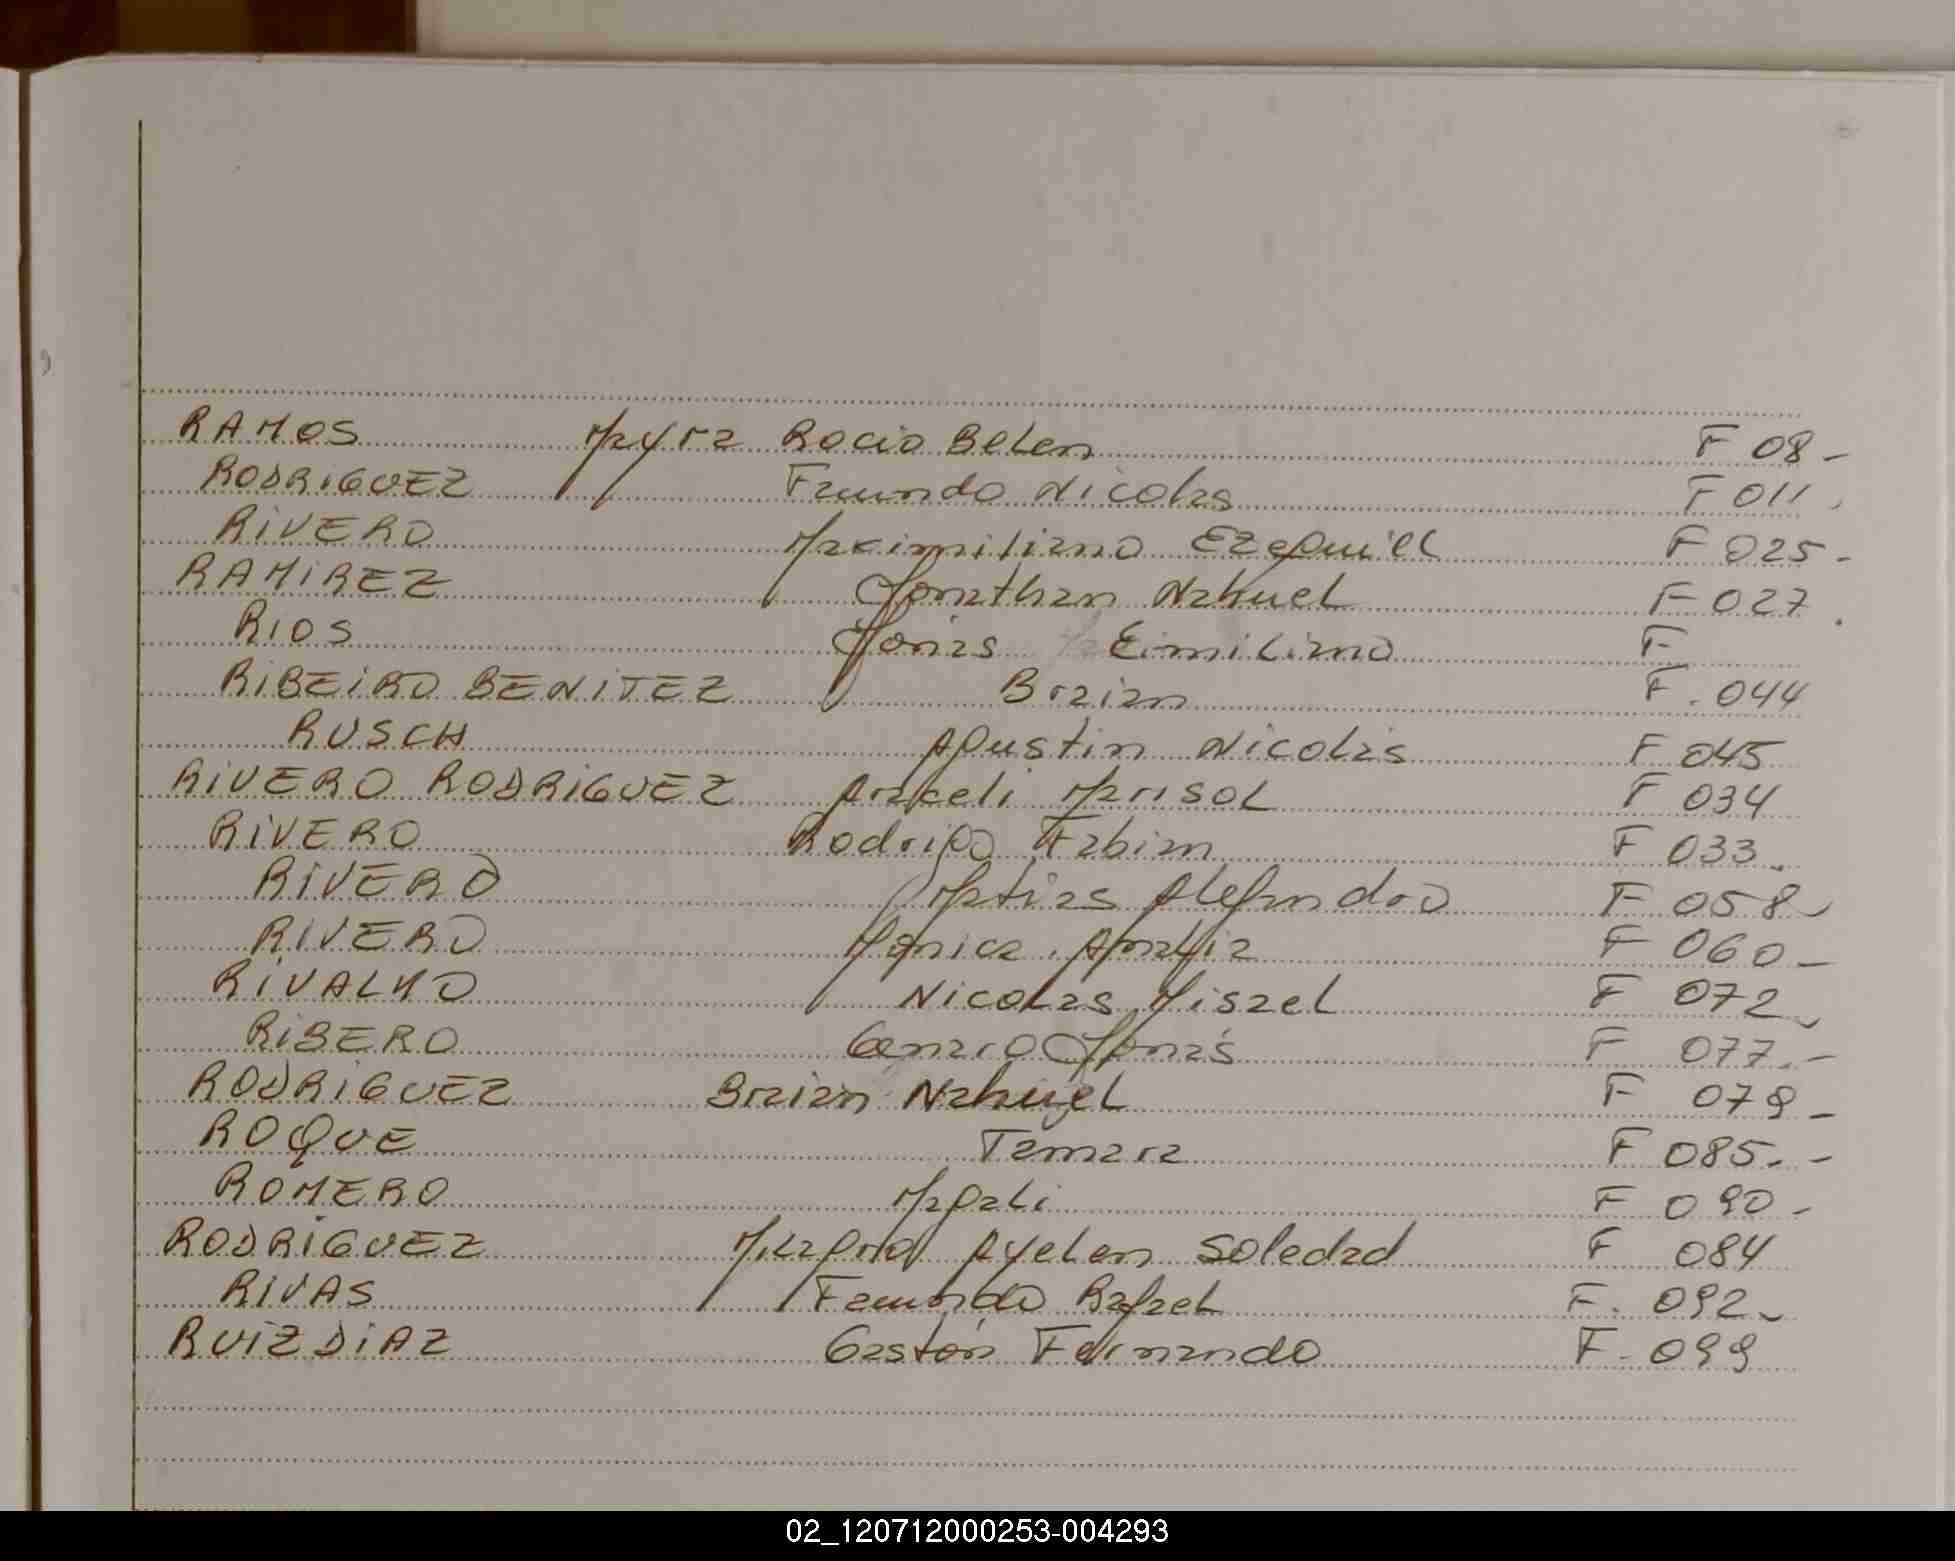 RAMOS Mayra Rocio Belen F 08-
RODRIGUEZ Facundo Nicolas F 011
RIVERO Maximiliano Ezequiel F 025-
RAMIREZ Jonathan Nahuel F 027.
RIOS Jonas Eimiliano F
RIBEIRO BENITEZ Braian F. 044
RUSCH Agustin Nicolas F 045
RIVERO RODRIGUEZ Araceli Marisol F 034
RIVERO Rodrigo Fabian F 033
RIVERO Matias Alejandro F 058-
RIVERO Monica Analia F 060-
RIVALMO Nicolas Misael F 072
RIBERO Genaro Jonás F 077.-
RODRIGUEZ Braian Nahuel F 079-
ROQUE Tamara F 085.-
ROMERO Magali F 090-
RODRIGUEZ Ayelen Soledad F 084
RIVAS Facundo Rafael F. 092-
RUIZ DIAZ Gastón Fernando F. 099
02_120712000253-004293